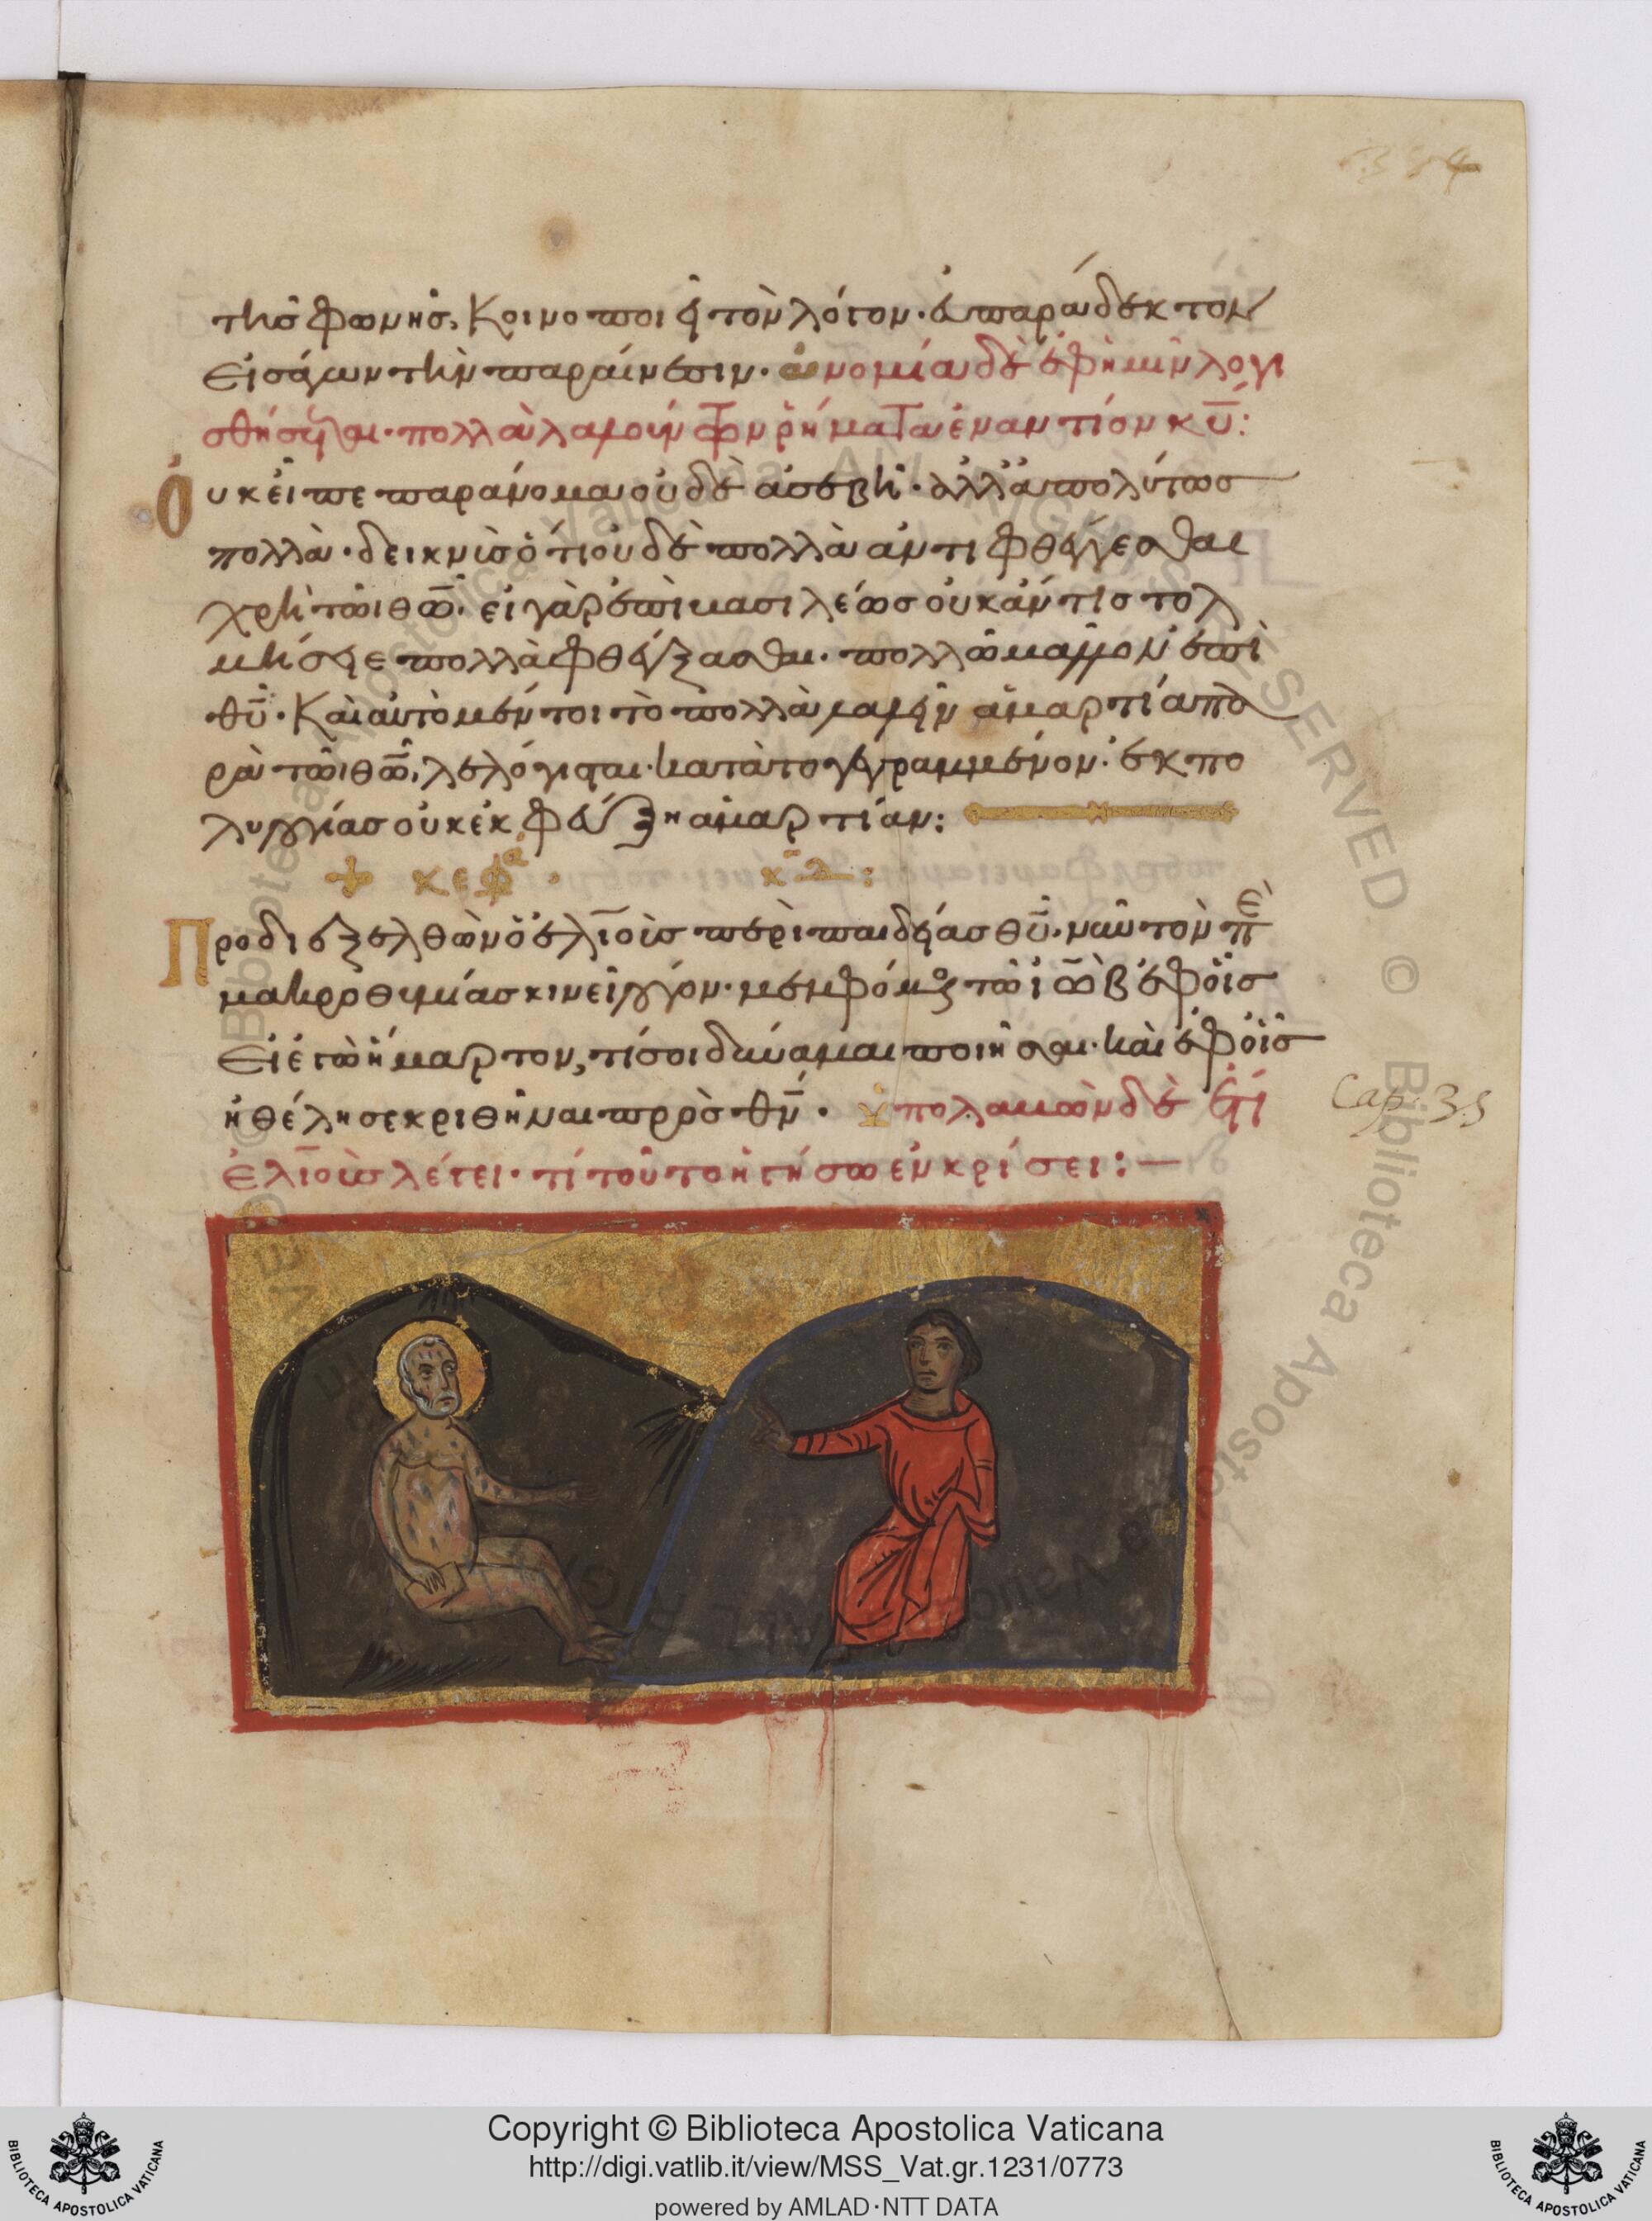 τῆς φωνῆς, κοινοποιεῖ τὸν λόγον· εὐπαράδεκτον
εἰσάγων τὴν παραίνεσιν· ἀνομία δὲ ἐφ' ἡμῖν λογι
σθήσεται· πολλὰ λαλούντων ῥήματα ἐναντίον κ̅υ̅:
Οὐκ εἶπε παράνομα οὐδὲ ἀσεβῆ· ἀλλ' ἀπολύτως
πολλὰ· δεικνὺς ὅτι οὐδὲ πολλὰ ἀντιφθέγγεσθαι
χρὴ τῶι θ̅ω̅· εἰ γὰρ ἐπὶ βασιλέως οὐκ ἄν τις τολ
μήσειε πολλὰ φθέγξασθαι· πολλῶ μᾶλλον ἐπὶ
θ̅υ̅· Καὶ αὐτὸ μέντοι τὸ πολλὰ λαλεῖν ἁμαρτία πα
ρὰ τῶι θ̅ω̅, λελόγισται· κατὰ τὸ γεγραμμένον· ἐκ πο
λυλογίας οὐκ ἐκφεύξη ἁμαρτίαν:
κεφα κ̅λ̅:
Προδιεξελθὼν ὁ ἐλιοὺς περὶ παιδείας θ̅υ̅· νῦν τὸν πε
μακροθυμίας κινεῖ λόγον· μεμφόμενος τῶ ἰὼβ ἐφ' οἷς
εἰ ἐγὼ ἥμαρτον, τί σοι δύναμαι ποιῆσαι· καὶ ἐφ' οἷς
ἠθέλησε κριθῆναι πρὸς θ̅ν̅· ὑπολαβὼν δὲ ἔτι
ἐλιοὺς λέγει· τί τοῦτο ἡγήσω ἐν κρίσει:—
Cap. 35
Copyright © Biblioteca Apostolica Vaticana
http://digi.vatlib.it/view/MSS_Vat.gr.1231/0773
powered by AMLAD·NTT DATA
BIBLIOTECA APOSTOLICA VATICANA
BIBLIOTECA APOSTOLICA VATICANA